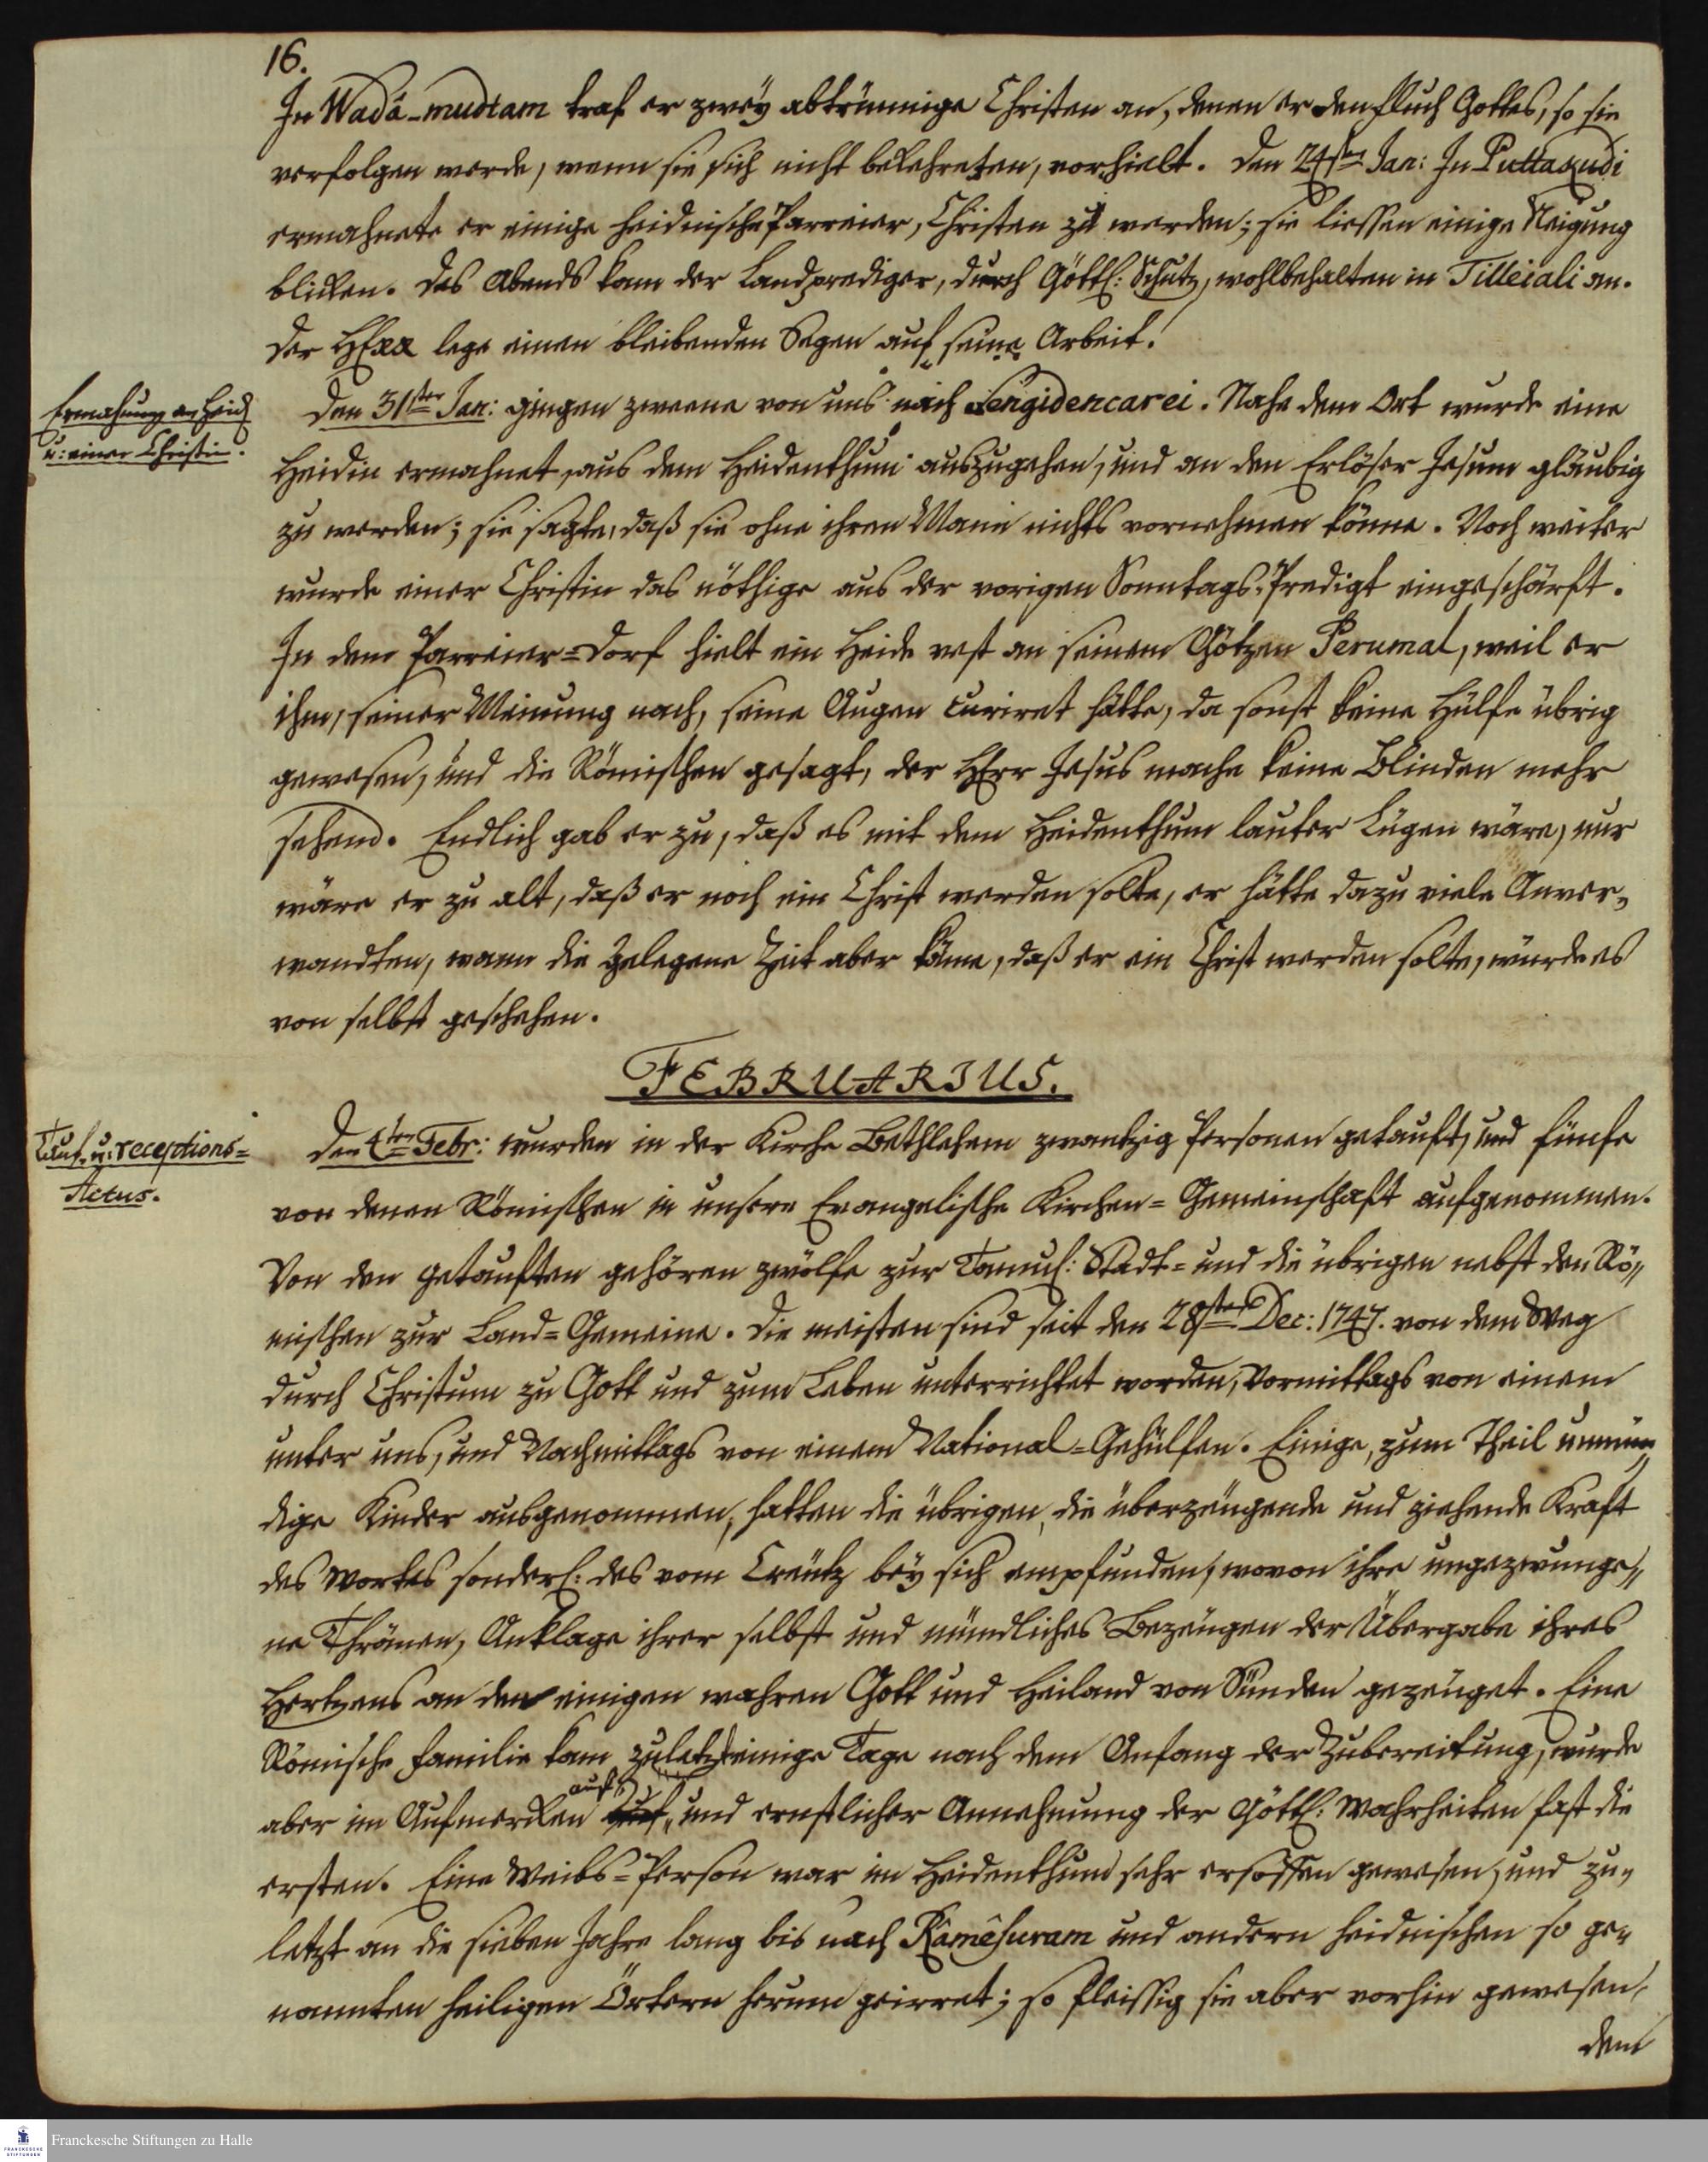 16.
In Wadá-mudtam traf er zwey abtrünnige Christen an, denen er den Fluch Gottes, so sie
verfolgen werde, wenn sie sich nicht bekehreten, vorhielt. Den 24sten Jan: In Puttakudi
ermahnete er einige heidnische Parreier, Christen zu werden; sie liessen einige Neigung
blicken. Des Abends kam der Landprediger, durch Göttl: Schutz, wohlbehalten in Tilleiali an.
Der HErr lege einen bleibenden Segen auf seine Arbeit!
Ermahnung an Heid.
u: einer Christin.
Den 31sten Jan: gingen zweene von uns nach Sengidencarei. Nahe dem Ort wurde eine
Heidin ermahnet, aus dem Heidenthum auszugehen, und an den Erlöser Jesum gläubig
zu werden; sie sagte, daß sie ohne ihren Mann nichts vornehmen könne. Noch weiter
wurde einer Christin das nöthige aus der vorigen Sonntags-Predigt eingeschärft.
In dem Parreier=Dorf hielt ein Heide vest an seinem Götzen Perumal, weil er
ihm, seiner Meinung nach, seine Augen curiret hätte, da sonst keine Hülfe übrig
gewesen, und die Römischen gesagt, der HErr Jesus mache keine Blinden mehr
sehend. Endlich gab er zu, daß es mit dem Heidenthum lauter Lügen wäre, nur
wäre er zu alt, daß er noch ein Christ werden solte, er hätte dazu viele Anver-
wandten, wann die gelegene Zeit aber käme, daß er ein Christ werden solte, würde es
von selbst geschehen.
FEBRUARIUS.
Tauf- u: receptions=
Actus.
Den 4ten Febr: wurden in der Kirche Bethlehem zwantzig Personen getauft, und fünfe
von denen Römischen in unsere Evangelische Kirchen=Gemeinschaft aufgenommen.
Von den getauften gehören zwölfe zur Tamul: Stadt= und die übrigen nebst den Rö-
mischen zur Land=Gemeine. Die meisten sind seit den 28sten Dec: 1747. von dem Weg
durch Christum zu Gott und zum Leben unterrichtet worden, Vormittags von einem
unter uns, und Nachmittags von einem National=Gehülfen. Einige, zum Theil unmün-
dige Kinder ausgenommen, hatten die übrigen, die überzeugende und ziehende Kraft
des Wortes sonderl: des vom Creutz bey sich empfunden, wovon ihre ungezwunge-
ne Thränen, Anklage ihrer selbst und mündliches Bezeugen der Übergabe ihres
Hertzens an den einigen wahren Gott und Heiland von Sünden gezeuget. Eine
Römische Familie kam zuletzt einige Tage nach dem Anfang der Zubereitung, wurde
aber im Aufmercken auf, und ernstlicher Annehmung der Göttl: Wahrheiten fast die
ersten. Eine Weibs=Person war im Heidenthum sehr ersoffen gewesen, und zu-
letzt an die sieben Jahre lang bis nach Râmêsuram und andern heidnischen so ge-
nannten heiligen Örtern herum geirret; so fleissig sie aber vorhin gewesen,
dem
Franckesche Stiftungen zu Halle